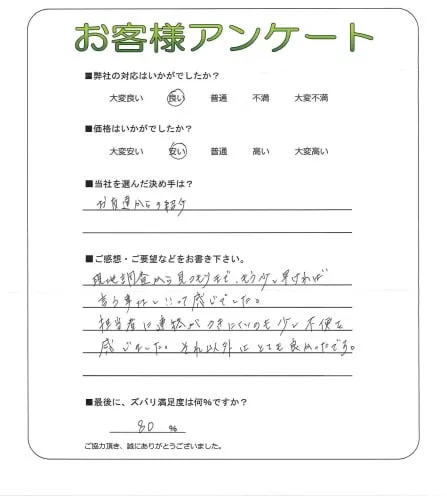 お客様アンケート
■弊社の対応はいかがでしたか？
大変良い 良い 普通 不満 大変不満
■価格はいかがでしたか？
大変安い 安い 普通 高い 大変高い
■当社を選んだ決め手は？
お友達からの紹介
■ご感想・ご要望などをお書き下さい。
現地調査から見つもりまで、もう少し早ければ
言う事なし！！って感じでした。
担当者に連絡がつきにくいのも少し不便を
感じました。それ以外はとても良かったです。
■最後に、ズバリ満足度は何%ですか？
80 %
ご協力頂き、誠にありがとうございました。